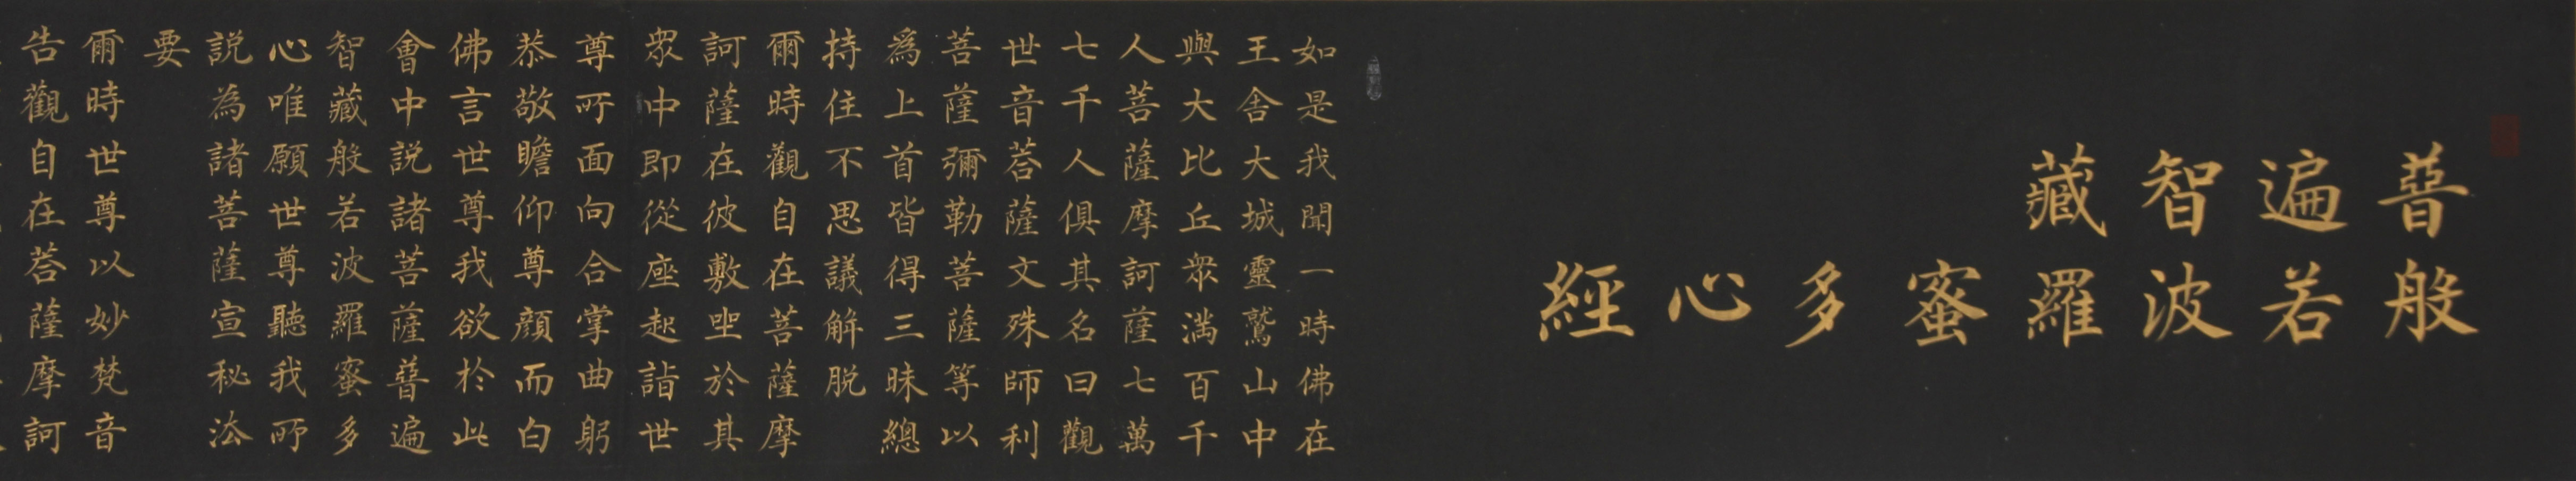 普遍智藏
般若波羅蜜多心經
如是我聞一時佛在
王舍大城靈鷲山中
與大比丘眾滿百千
人菩薩摩訶薩七萬
七千人俱其名曰觀
世音菩薩文殊師利
菩薩彌勒菩薩等以
爲上首皆得三昧總
持住不思議解脱
爾時觀自在菩薩摩
訶薩在彼敷坐於其
眾中即從座起詣世
尊所面向合掌曲躬
恭敬瞻仰尊顏而白
佛言世尊我欲於此
會中説諸菩薩普遍
智藏般若波羅蜜多
心唯願世尊聽我所
説為諸菩薩宣秘法
要
爾時世尊以妙梵音
告觀自在菩薩摩訶